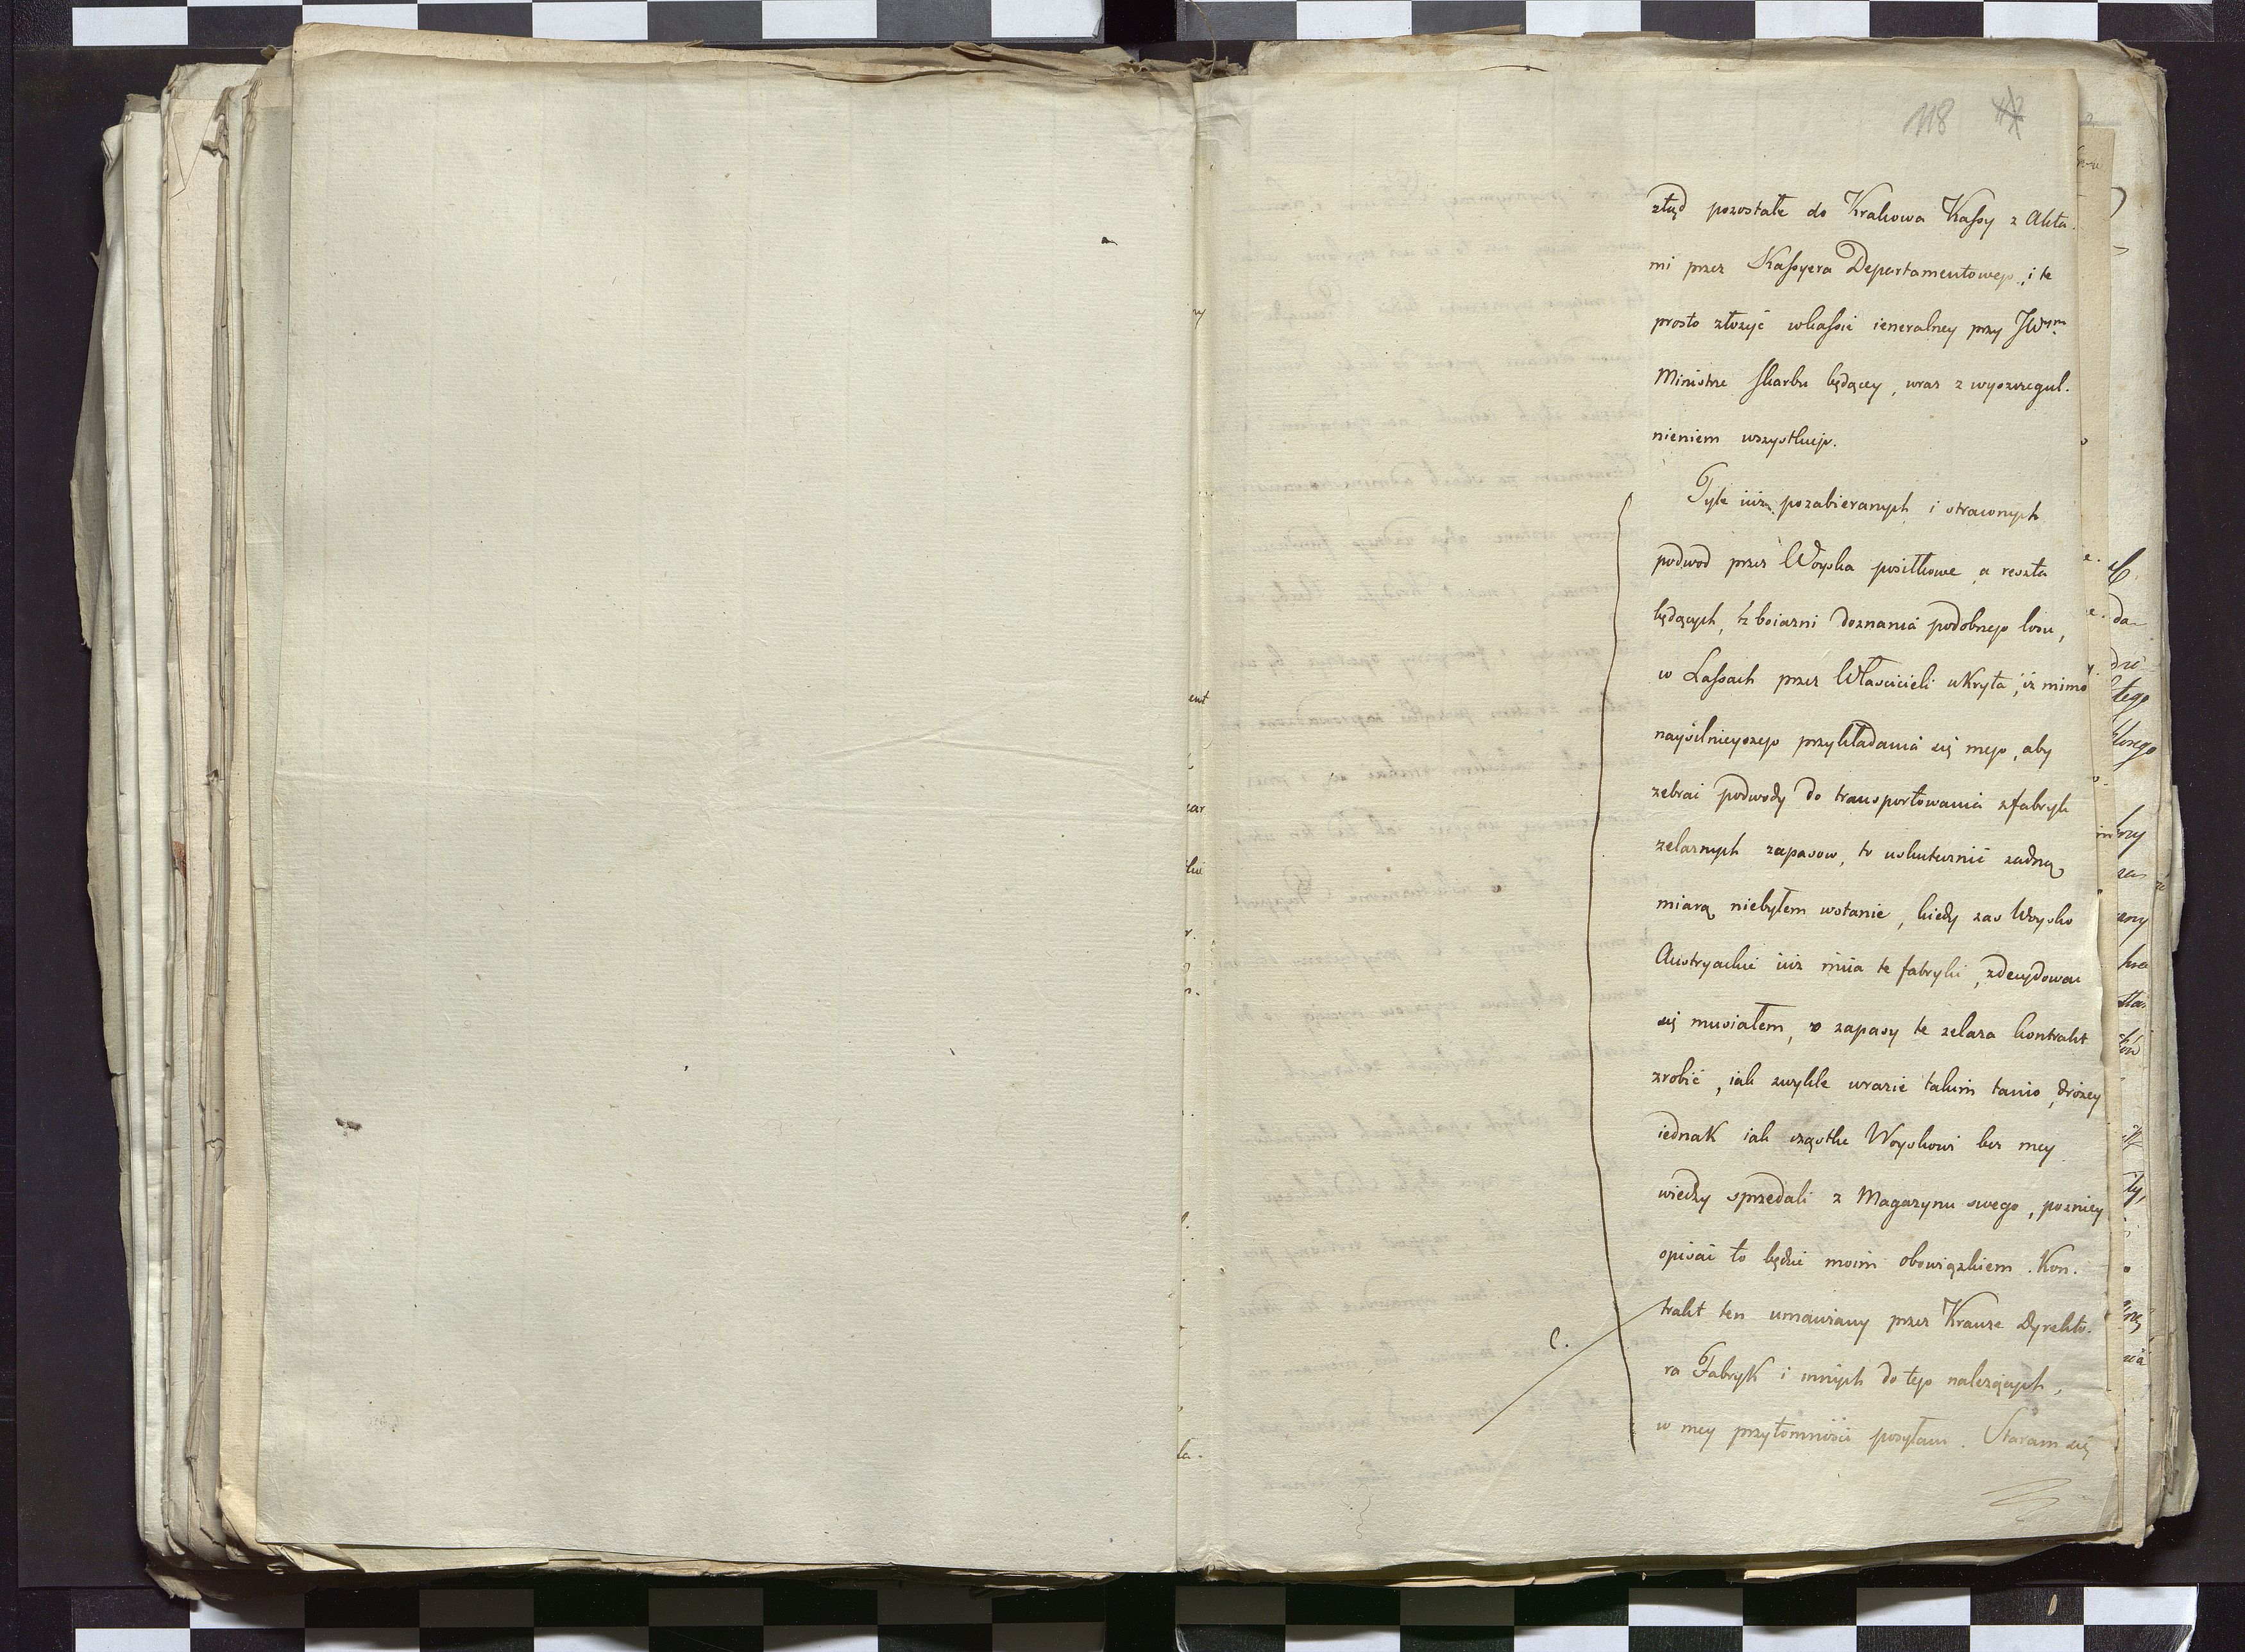 118
ztąd pozostałe do Krakowa Kassy z Akta.
mi przez Kassyera Departamentowego, i te
prosto złozyć wkassie ieneralney przy JWym
Ministrze skarbu będącey, wraz z wyszczegul.
nieniem wszystkiego.
Tyle iuz pozabieranych i straconych
podwod przez Woyska posiłkowe a reszta
będących, z boiazni doznania podobnego losu,
w Lassach przez Włascicieli ukryta, iz mimo
naysilnieyszego przykładania się mego, aby
zebrać podwody do transportowania zfabryk
zelaznych zapasow, to uskutecznić zadną
miarą niebyłem wstanie, kiedy zas Woysko
Austryackie iuz miia te fabryki, zdecydować
się musiałem, o zapasy te zelaza kontrakt
zrobić, iak zwykle wrazie takim tanio, drozey
iednak iak cząstke Woyskowi bez mey
wiedzy sprzedali z Magazynu swego, pozniey
opisać to będzie moim obowiązkiem. Kon.
trakt ten umawiany przez Krauze Dyrekto.
C.
ra Fabryk i innych do tego nalezących,
w mey przytomnosci posyłam. Staram się